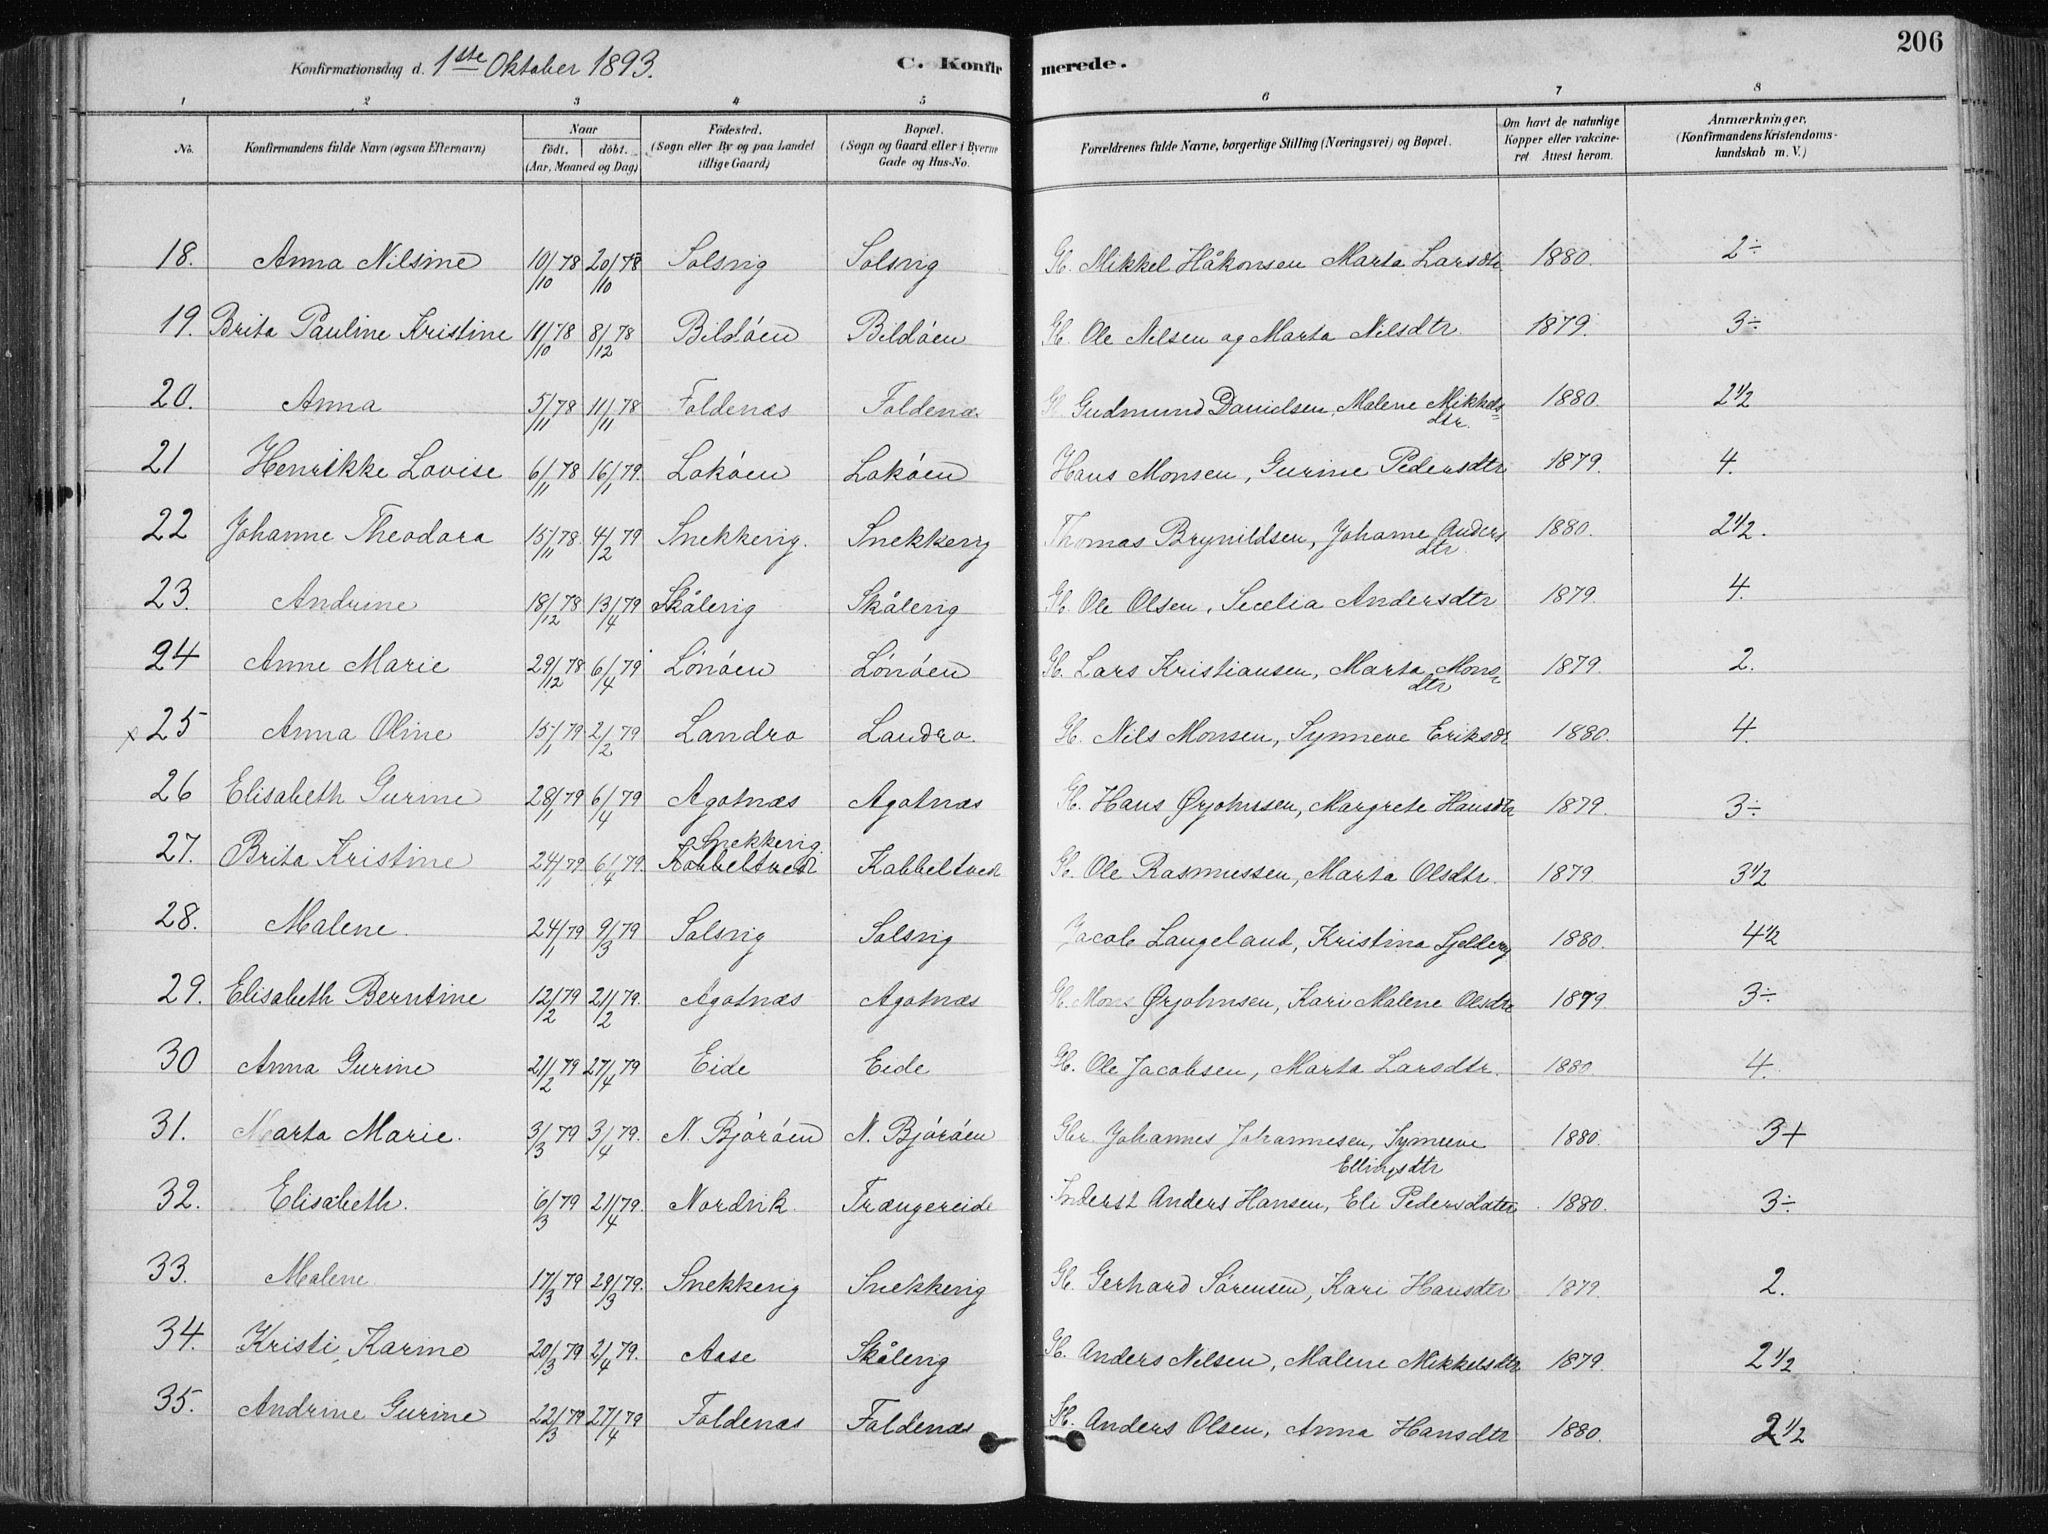 206
Konfirmationsdag d. 1ste Oktober 1893. C. Konfirmerede.
1 2 3 4 5 6 7 8
No. Konfirmandens fulde Navn (ogsaa Efternavn) Naar födt. döbt. (Aar, Maaned og Dag) Födested. (Sogn eller By og paa Landet tillige Gaard) Bopæl. (Sogn og Gaard eller i Byerne Gade og Hus-No. Forældrenes fulde Navne, borgerlige Stilling (Næringsvei) og Bopæl. Om havt de naturlige Kopper eller vakcineret Attest herom. Anmærkninger. (Konfirmandens Kristendomskundskab m. V.)
18. Anna Nilsine 10/10 78 20/10 78 Solsvig Solsvig G. Mikkel Håkonsen Marta Larsdtr 1880. 2÷
19. Brita Pauline Kristine 11/10 78 8/12 78 Bildöen Bildöen G. Ole Nilsen og Marta Nilsdtr 1879. 3÷
20. Anna 5/11 78 11/11 78 Foldenæs Foldenæs G. Gudmund Danielsen, Malene Mikkelsdtr. 1880. 2 1/2
21 Henrikke Lovise 6/11 78 16/1 79. Loköen Loköen Hans Monsen, Gurine Pedersdtr 1879. 4.
22 Johanne Theodora 15/11 78. 4/2 79 Snekkevig. Snekkevig Thomas Brynildsen, Johanne Andersdtr. 1880. 2 1/2.
23. Andrine 18/12 78 13/4 79 Skålevig Skålevig G. Ole Olsen, Secelia Andersdtr 1879. 4.
24 Anne Marie 29/12 78 6/4 79 Lönöen Lönöen G. Lars Kristiansen, Marta Monsdtr 1879. 2.
x 25 Anna Oline 15/1 79 2/2 79 Landro Landro. G. Nils Monsen, Synneve Eriksdtr 1880. 4.
26 Elisabeth Gurine 28/1 79 6/4 79 Agotnæs Agotnæs G. Hans Ørjohnsen, Margrete Hansdtr 1879. 3÷
27. Brita Kristine 24/1 79 6/4 79. Snekkevig. Kobbeltvedt Kobbeltvedt G. Ole Rasmussen, Marta Olsdtr. 1879. 3 1/2
28. Malene. 24/1 79 9/3 79 Solsvig Solsvig Jacob Langeland, Kristina 1880. 4 1/2
29. Elisabeth Berntine 12/2 79 21/2 79. Agotnæs Agotnæs G. Mons Ørjohnsen, Kari Malene Olsdtr 1879 3÷
30 Anna Gurine 21/2 79 27/4 79 Eide Eide G. Ole Jacobsen, Marta Larsdtr. 1880. 4.
31. Marta Marie. 3/3 79 3/4 79. N. Björöen N. Björöen Gbr. Johannes Johannesen, Synneve Ellingsdtr 1880. 3+
32. Elisabeth. 6/3 79 21/4 79. Nordvik Trængereide Inderst Anders Hansen, Eli Pedersdatter 1880. 3÷
33. Malene 17/3 79 29/3 79. Snekkevig Snekkevig G. Gerhard Sörensen, Kari Hansdtr 1879. 2.
34. Kristi Karine 20/3 79 2/4 79. Aase Skålevig G. Anders Nilsen, Malene Mikkelsdtr 1879. 2 1/2
35. Andrine Gurine 22/3 79 27/4 79 Foldenæs Foldenæs G. Anders Olsen, Anna Hansdtr 1880. 2 1/2